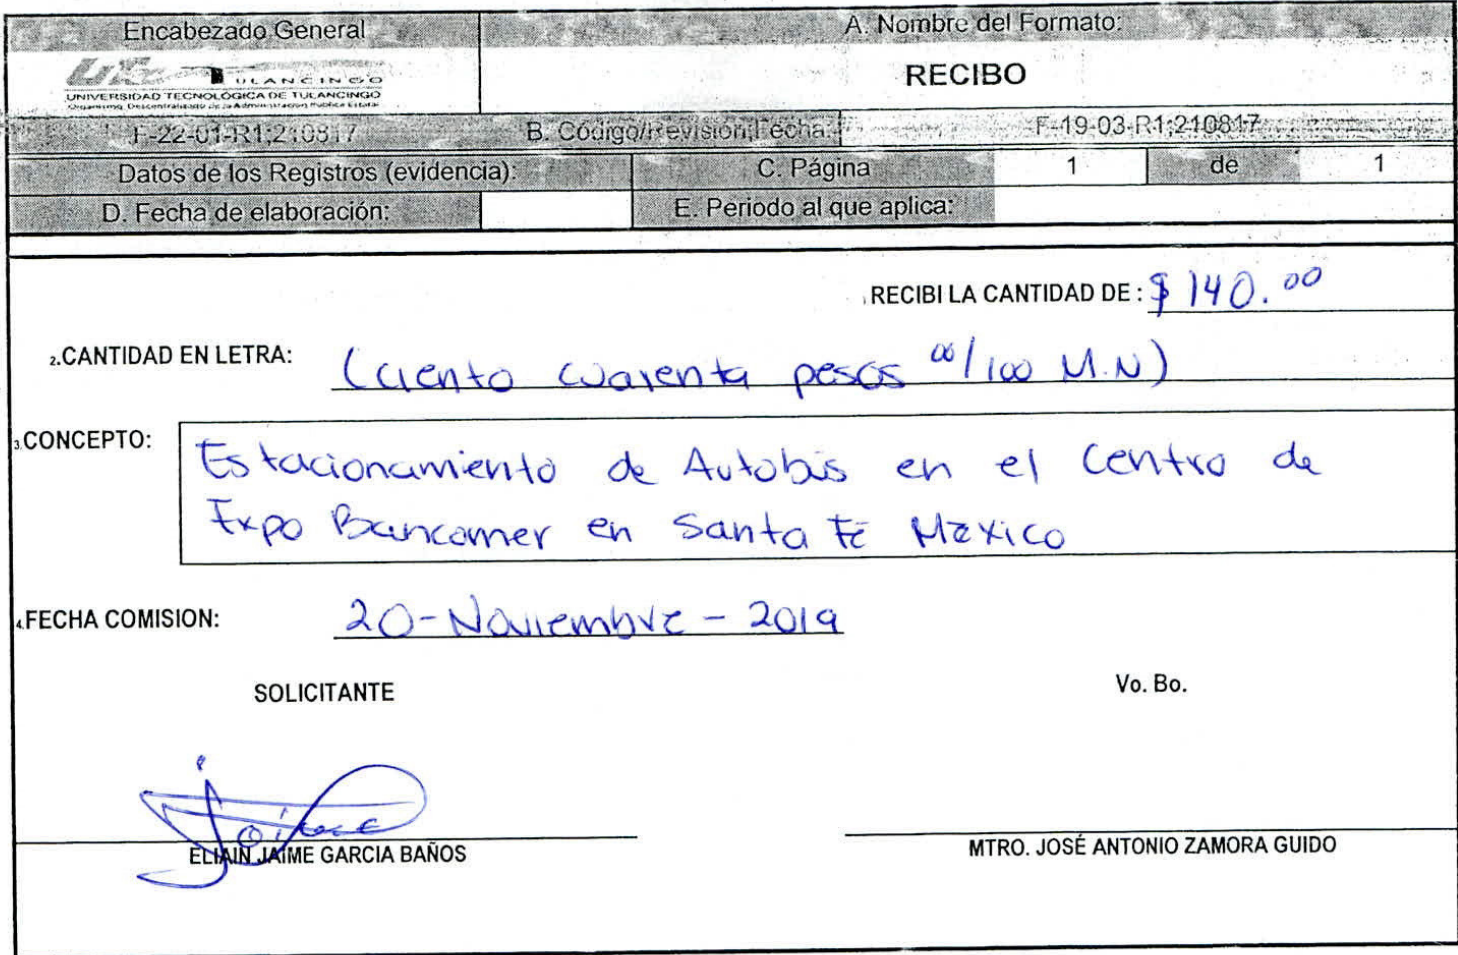 Encabezado General
A. Nombre del Formato:
TULANCINGO
UNIVERSIDAD TECNOLÓGICA DE TULANCINGO
Organismo Descentralizado de la Administración Pública Estatal
RECIBO
F-22-01-R1;210817
B. Código/Revisión;Fecha:
F-19-03-R1;210817
Datos de los Registros (evidencia):
C. Página
1
de
1
D. Fecha de elaboración:
E. Periodo al que aplica:
1.RECIBI LA CANTIDAD DE: $ 140.00
2.CANTIDAD EN LETRA: (Ciento cuarenta pesos 00/100 M.N)
3.CONCEPTO: Estacionamiento de Autobús en el Centro de
Expo Bancomer en Santa Fé México
4.FECHA COMISION: 20-Noviembre-2019
SOLICITANTE
Vo. Bo.
Jaime
ELIAIN JAIME GARCIA BAÑOS
MTRO. JOSÉ ANTONIO ZAMORA GUIDO